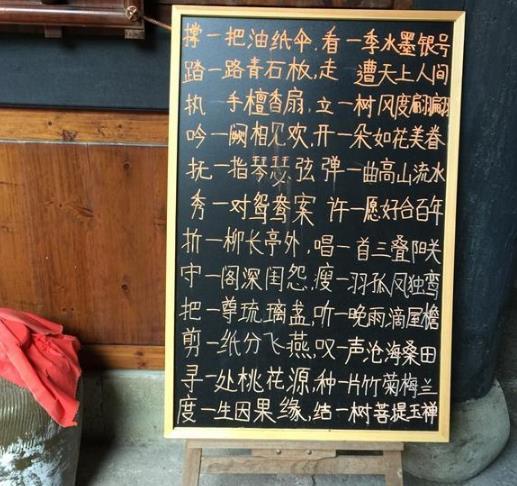 撑一把油纸伞,看一季水墨银号
踏一路青石板,走 遭天上人间
执 手檀香扇,立一树风度翩翩
吟一阙相见欢,开一朵如花美眷
抚一指琴瑟弦 弹一曲高山流水
秀一对鸳鸯案 许一愿好合百年
折一柳长亭外,唱一首三叠阳关
守一阁深闺怨,瘦一羽孤凤独鸾
把一尊琉璃盏,听一晚雨滴屋檐
剪一纸分飞燕,叹一声沧海桑田
寻一处桃花源,种一片竹菊梅兰
度一生因果缘,结一树菩提玉禅